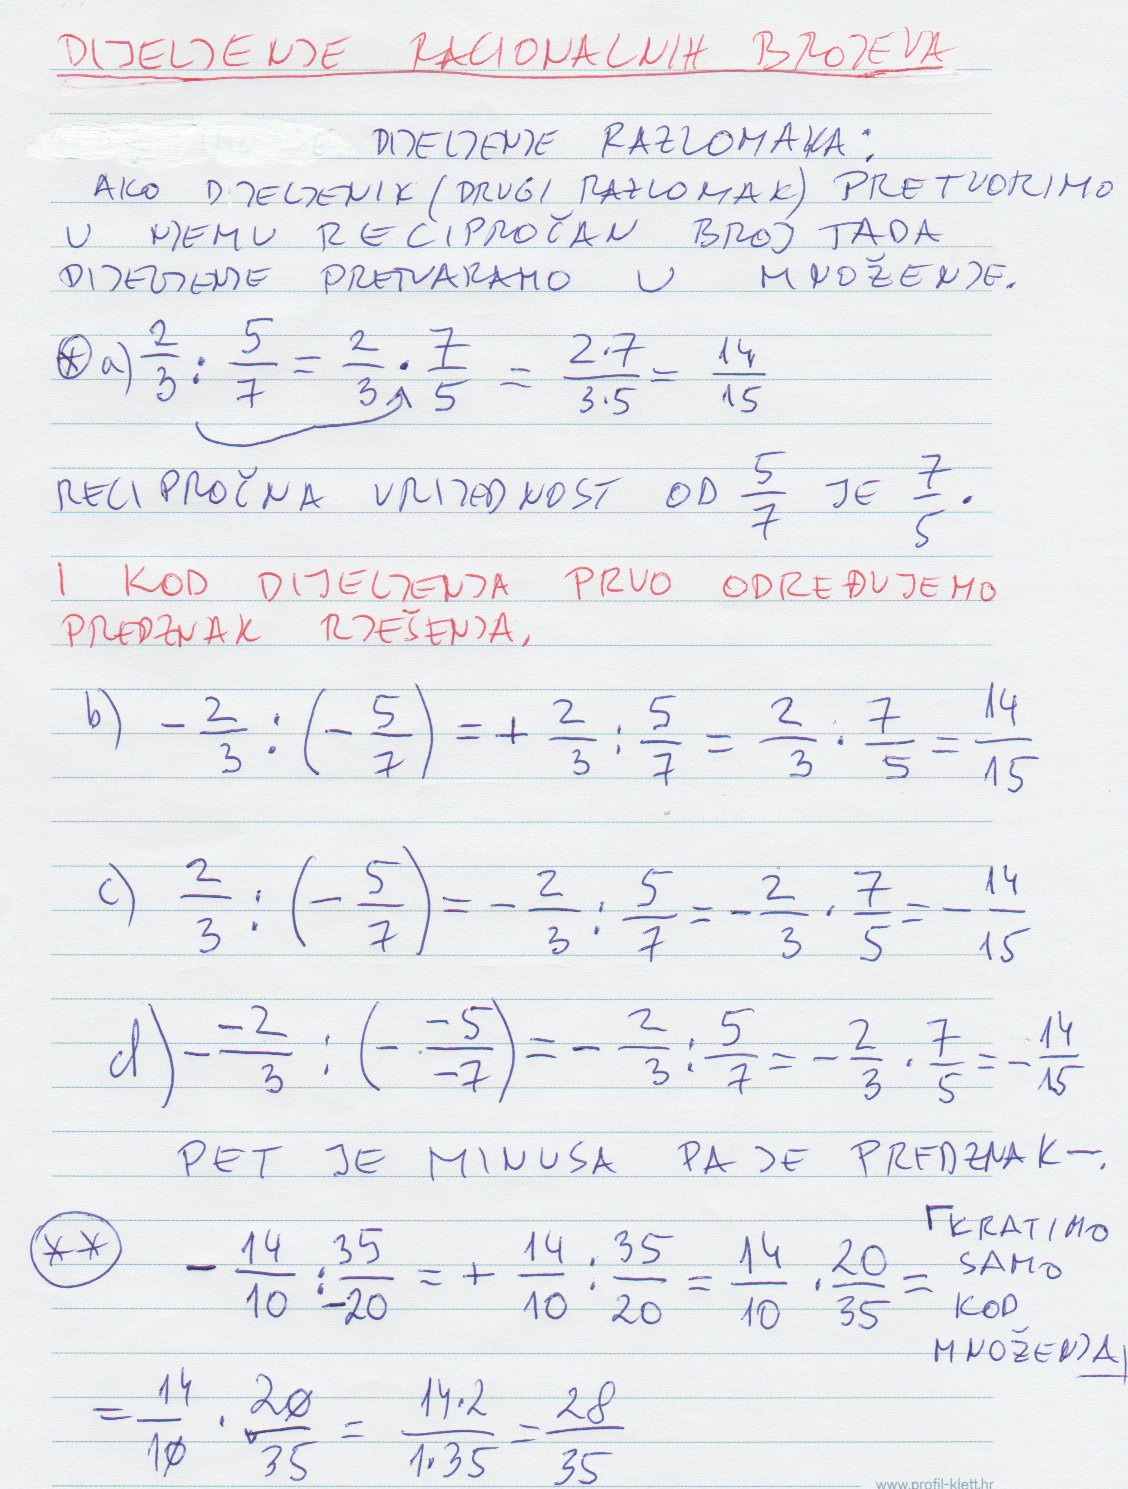 DIJELJENJE RACIONALNIH BROJEVA
DIJELJENJE RAZLOMAKA:
AKO DIJELJENIK (DRUGI RAZLOMAK) PRETVORIMO
U NJEMU RECIPROČAN BROJ TADA
DIJELJENJE PRETVARAMO U MNOŽENJE.
* a) 2/3 : 5/7 = 2/3 · 7/5 = 2·7/3·5 = 14/15
RECIPROČNA VRIJEDNOST OD 5/7 JE 7/5.
I KOD DIJELJENJA PRVO ODREĐUJEMO
PREDZNAK RJEŠENJA.
b) -2/3 : (-5/7) = + 2/3 : 5/7 = 2/3 · 7/5 = 14/15
c) 2/3 : (-5/7) = -2/3 : 5/7 = -2/3 · 7/5 = -14/15
d) - -2/3 : (- -5/-7) = -2/3 : 5/7 = -2/3 · 7/5 = -14/15
PET JE MINUSA PA JE PREDZNAK -.
** -14/10 : 35/-20 = + 14/10 : 35/20 = 14/10 · 20/35 =
KRATIMO
SAMO
KOD
MNOŽENJA
= 14/10 · 20/35 = 14·2/1·35 = 28/35
www.profil-klett.hr